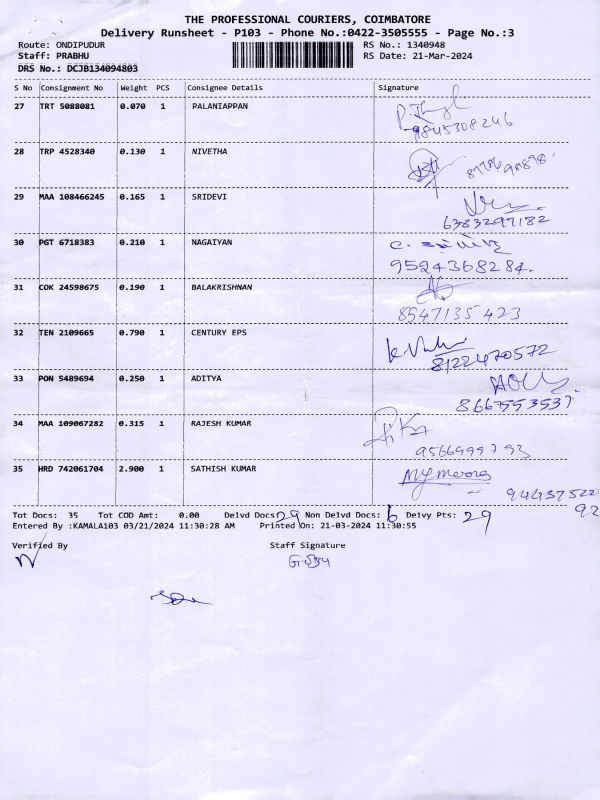 THE PROFESSIONAL COURIERS, COIMBATORE
Delivery Runsheet - P103 - Phone No.:0422-3505555 - Page No.:3
Route: ONDIPUDUR RS No.: 1340948
Staff: PRABHU RS Date: 21-Mar-2024
DRS No.: DCJB134094803
S No Consignment No Weight PCS Consignee Details Signature
27 TRT 5088081 0.070 1 PALANIAPPAN
9845308246
28 TRP 4528340 0.130 1 NIVETHA
29 MAA 108466245 0.165 1 SRIDEVI
6383297182
30 PGT 6718383 0.210 1 NAGAIYAN
9524368284.
31 COK 24598675 0.190 1 BALAKRISHNAN
8547135423
32 TEN 2109665 0.790 1 CENTURY EPS
8122470572
33 PON 5489694 0.250 1 ADITYA
8667553537
34 MAA 109067282 0.315 1 RAJESH KUMAR
9566999793
35 HRD 742061704 2.900 1 SATHISH KUMAR
9443752292
Tot Docs: 35 Tot COD Amt: 0.00 Delvd Docs: 29 Non Delvd Docs: 6 Delvy Pts: 29
Entered By :KAMALA103 03/21/2024 11:30:28 AM Printed On: 21-03-2024 11:30:55
Verified By Staff Signature